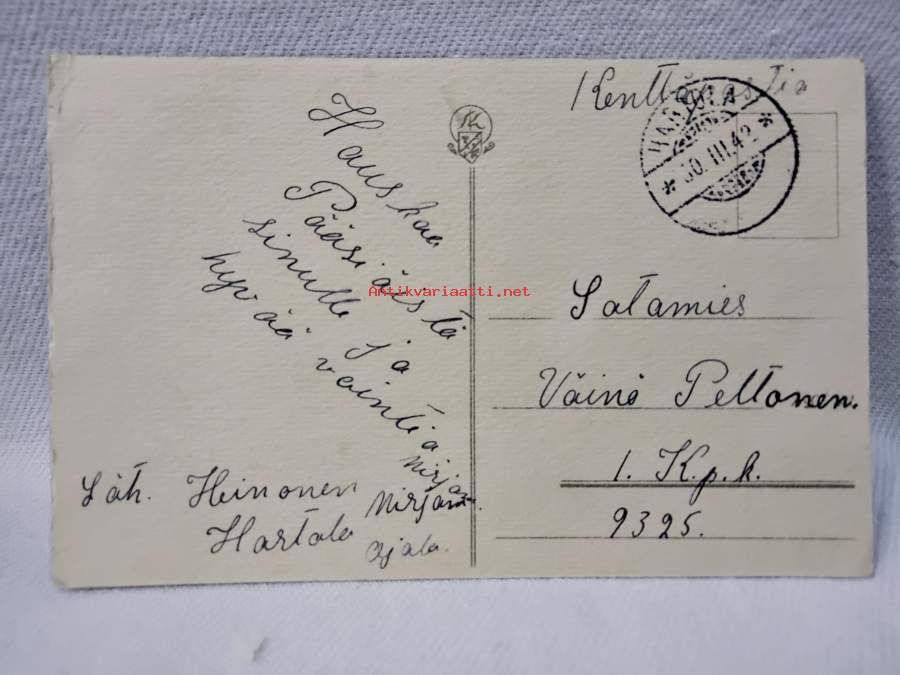 Hauskaa
Pääsiäistä
sinulle ja
hyvää vointia
Mirja
Läh. Heinonen Mirjam.
Hartola
Ojala.
Kenttäpostia
HARTOLA
30.III.42
Sotamies
Väinö Peltonen.
1. K.p.k.
9325.
Antikvariaatti.net